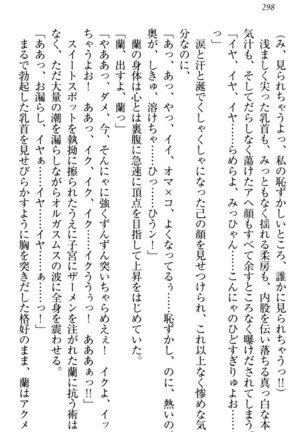 298
(み、見られちゃうよっ、私の恥ずかしいところ、誰かに見られちゃうっ!!)
浅ましく尖った乳首も、大きく揺れる柔房も、内股を伝い落ちる真っ白な本
気汁も、そしてだらしなく蕩けたアヘ顔もすべて余すところなく曝けだされてしまう。
「イヤ、イヤ……らめらよ、みっひゃん……こんにゃのひどすぎりゅよお……」
涙と汗と涎でくしゃくしゃになった己の顔を見せつけられ、これ以上なく惨めな気
分なのに、
「ああっ、あっ、やっ、イイ、オマ×コ、よくなってるぅ……恥ずかし、のに、熱いの
奥が、しきゅ、溶けちゃ……ひっ……ひうン!」
蘭の身体は心とは裏腹に急速に頂点を目指して上昇をはじめていた。
「蘭、出すよ、蘭っ」
「やあああっ、ダメ、今、そんにゃに強くずんずん突いちゃらめえ! イクよ、イッ
ちゃうよお! ああっ、イク、イク……イクううぅっ! あああぁっ!!」
スイートスポットを執拗に擦られたうえに子宮にザーメンを注がれた蘭に抗う術は
なく、ただ大量の潮を漏らしながらオルガスムスの波に全身を震わせる。
「ああっ、お漏らし、イヤぁ……イヤ……イヤぁ……ああぁっ!」
まるで勃起した乳首を見せびらかすように胸を突きだした格好のまま、蘭はアクメ